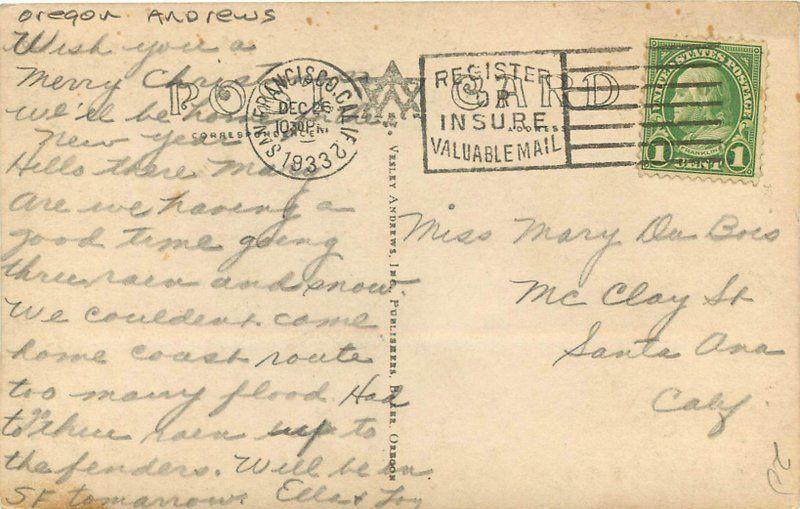 oregon Andrews
Wish you a
Merry Christmas
we'll be home
New year
Hello there Mary
Are we having a
good time going
thru rain and snow.
We couldent come
home coast route
too many flood. Had
to thru rain up to
the fenders. Will be in
SF tomarrow. Ella &
POST CARD
CORRESPONDENCE
ADDRESS
SAN FRANCISCO, CALIF. 2
DEC 26
1933
REGISTER
OR
INSURE
VALUABLE MAIL
UNITED STATES POSTAGE
FRANKLIN
1 CENT 1
WESLEY ANDREWS, INC., PUBLISHERS, BAKER, OREGON
Miss Mary Du Bois
Mc Clay St
Santa Ana
Calif